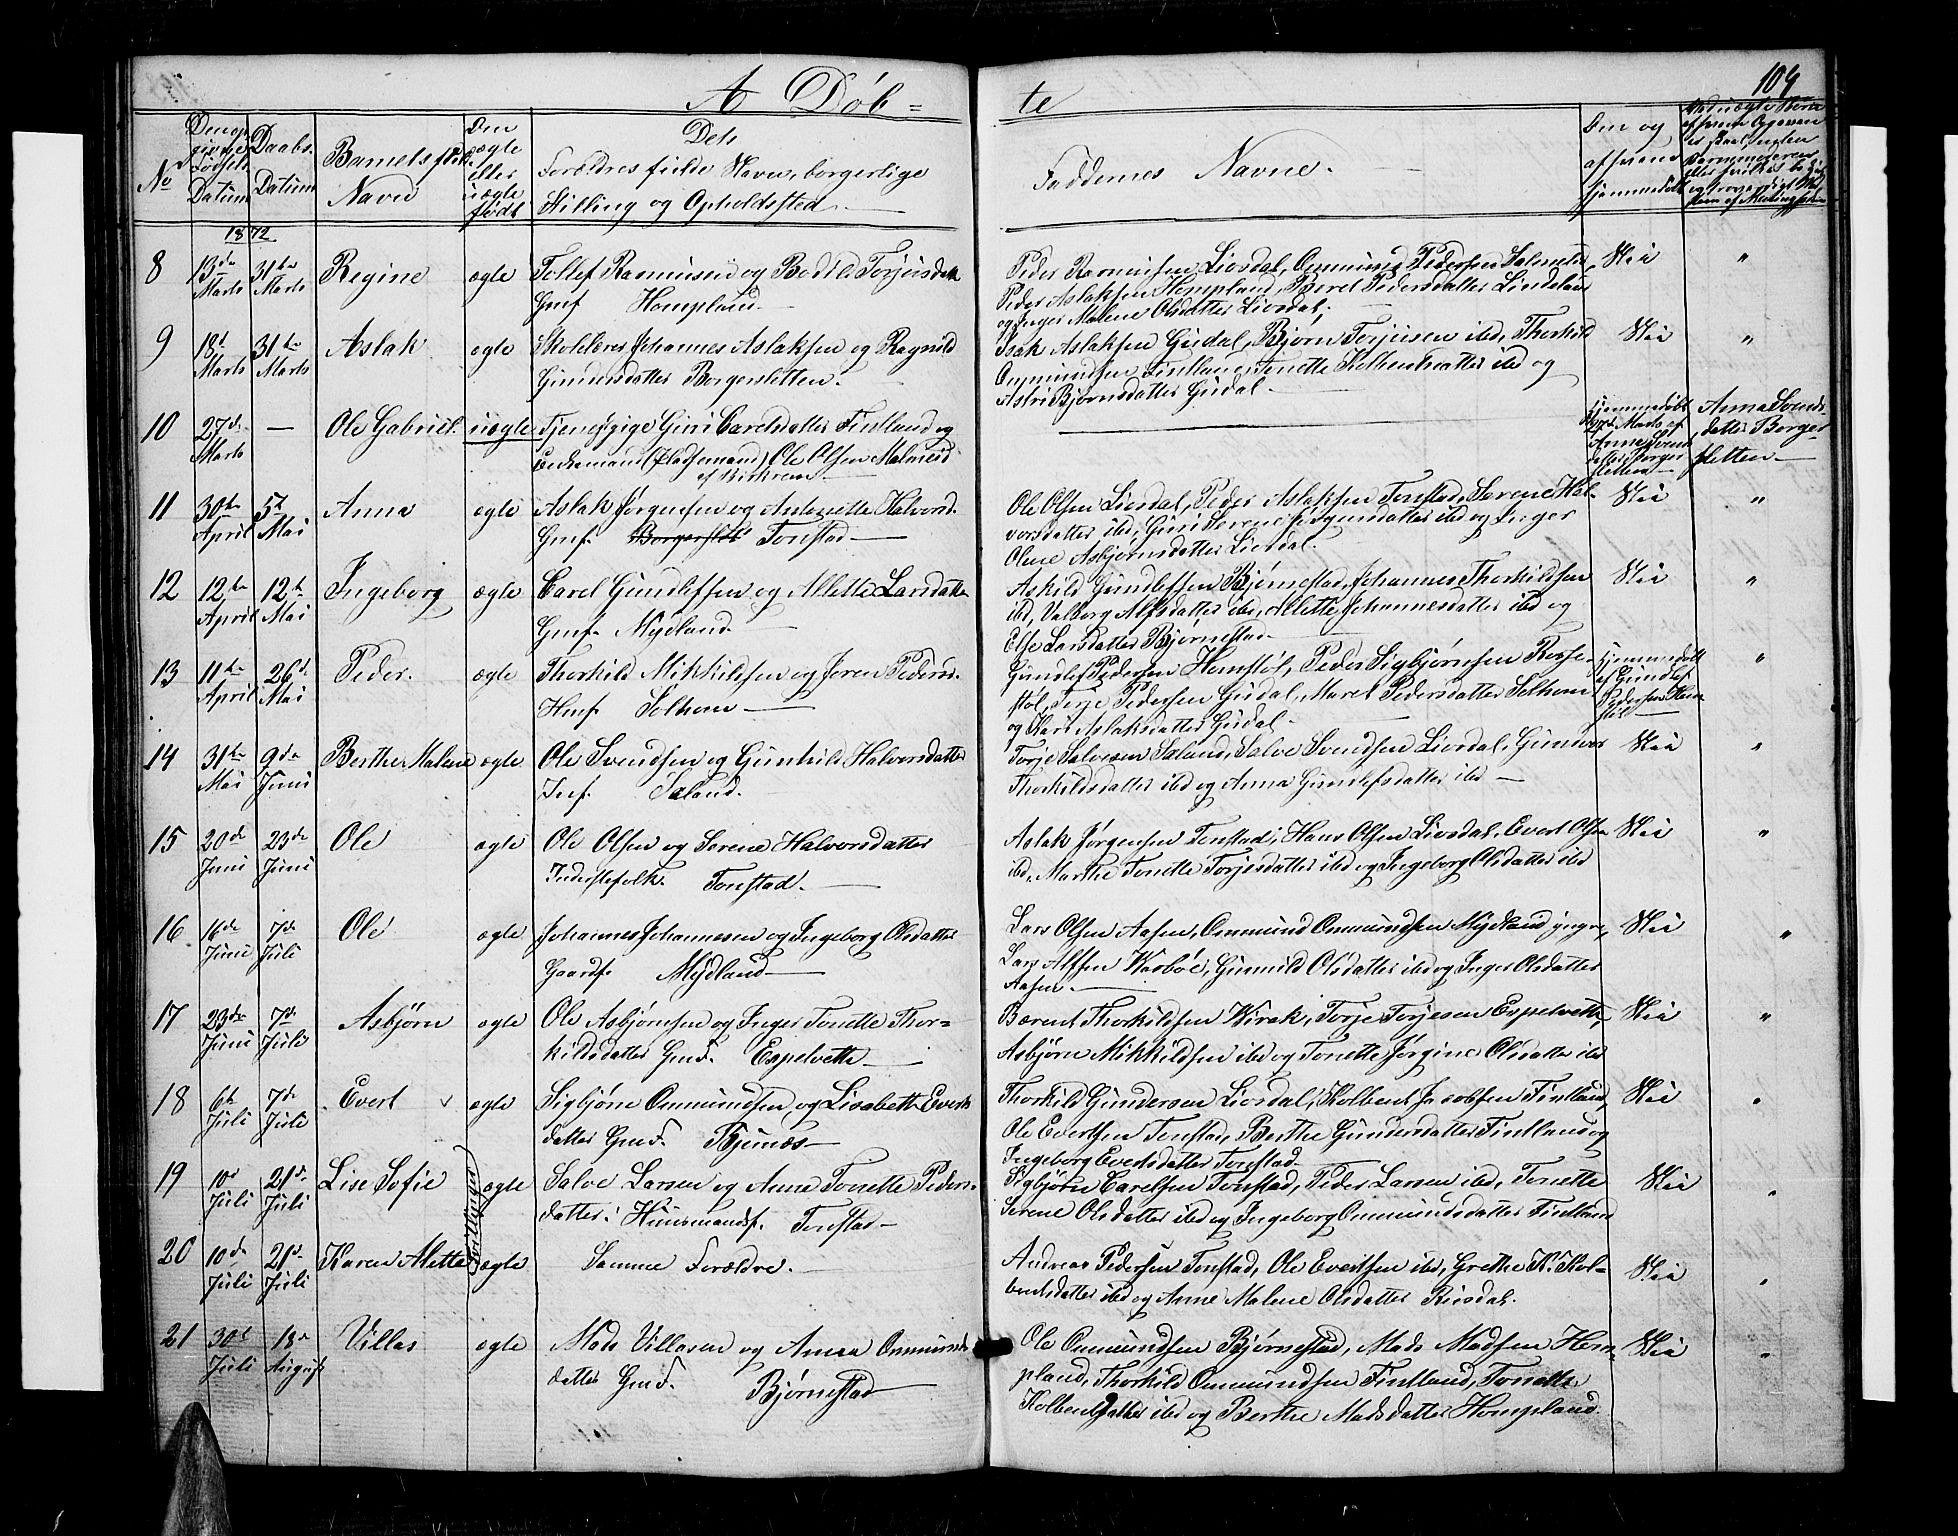 A Døb=
te
104
No
Den op
givne
Fødsels
Datum
Daabs.
Datum
Barnets fulde
Navn
Om
ægte
eller
uægte
født
Dets
Forældres fulde Navn, borgerlige
Stilling og Opholdssted.
Faddernes Navne.
Om og
af hvem
hjemmedøbt
1872
8 13de Marts 31te Marts Regine ægte Tollef Rasmussen og Bodil Torjusdatt.
Gmf Hompland.
Peder Rasmussen Liosdal, Ommund Pedersen
Peder Aslaksen Hompland, Beret Pedersdatter Lindeland
og Inger Malene Olsdatter Liosdal,
Nei "
9 18de Marts 31te Marts Aslak ægte Skolelærer Johannes Aslaksen og Ragnild
Gundersdatter Borgersletten.
Isak Aslaksen Gudal, Bjørn Torjusen ibd, Thorkild
Ommundsen Fintland, Tonette Kolbentsdatter ibd og
Astri Bjørnsdatter Gudal.
Nei "
10 27de Marts — Ole Gabriel. uægte Tjenestpige Guri Carelsdatter Fintland og
Ole Olsen Malmeid
af Birkrem
Hjemmedøbt
Marts af
Anne Svends
datter Borger
sletten
Anna Svends
datter Borger
sletten
11 30te April 5te Mai Anna ægte Aslak Jørgensen og Antonette Halvorsd.
Gmf. Borgerslet Tonstad
Ole Olsen Liosdal, Peder Aslaksen Tonstad, Serene Hal-
vorsdatter ibd, Guri Serene Jørgensdatter ibd og Inger
Oline Asbjørnsdatter Liosdal.
Nei "
12 12te April 12te Mai Ingeborg ægte Carel Gundlefsen og Alette Larsdatter
Gmf. Mydland.
Askild Gundlefsen Bjørnestad, Johannes Thorkildsen
ibd, Valborg Alfsdatter ibd, Alette Johannesdatter ibd og
Else Larsdatter Bjørnestad.
Nei "
13 11te April 26de Mai Peder. ægte Thorkild Mikkildsen og Joren Pedersd.
Hmf. Solhom
Gundlef Pedersen Homstøl, Peder Sigbjørnsen Rosse-
støl, Terje Pedersen Gudal, Maret Pedersdatter Solhom
og Kari Aslaksdatter Gudal.
Hjemmedøbt
af Gundlef
Pedersen Hom
støl
"
14 31te Mai 9de Juni Berthe Malene ægte Ole Svendsen og Gunhild Halvorsdatter
Inf. Saland.
Torje Salvesen Saland, Salve Svendsen Liosdal, Gunvor
Thorkildsdatter ibd og Anna Gundlefsdatter ibd
Nei "
15 20de Juni 23de Juni Ole ægte Ole Olsen og Serene Halvorsdatter
Inderstefolk. Tonstad.
Aslak Jørgensen Tonstad, Hans Olsen Liosdal, Evert Olsen
ibd, Marthe Tonette Torjesdatter ibd og Ingeborg Olsdatter ibd
Nei "
16 16de Juni 7de Juli Ole ægte Johannes Johannesen og Ingeborg Olsdatter
Gaardf. Mydland
Lars Olsen Aasen, Ommund Ommundsen Mydland yngre,
Lars Alfsen Warboe, Gunnild Olsdatter ibd og Inger Olsdatter
Aasen.
Nei "
17 23de Juni 7de Juli Asbjørn ægte Ole Asbjørnsen og Inger Tonette Thor-
kildsdatter Gmf. Espelvette
Bærent Thorkildsen Wirak, Torje Torjesen Espelvette,
Asbjørn Mikkildsen ibd og Tonette Jørgine Olsdatter ibd
Nei "
18 6te Juli 7de Juli Evert ægte Sigbjørn Ommundsen og Lisabeth Everts
datter Gmf. Bjunes
Thorkild Gundersen Liosdal, Kolbent Jacobsen Fintland,
Ole Evertsen Tonstad, Berthe Gundersdatter Fintland og
Ingeborg Evertsdatter Tonstad.
Nei "
19 10de Juli 21de Juli Lise Sofie Tvillinger ægte Salve Larsen og Anne Tonette Peders-
datter. Huusmandsf. Tonstad
Sigbjørn Carelsen Tonstad, Peder Larsen ibd, Tonette
Serene Olsdatter ibd og Ingeborg Ommundsdatter Fintland
Nei "
20 10de Juli 21de Juli Karen Alette ægte Samme Forældre.
Andreas Pedersen Tonstad, Ole Evertsen ibd, Grethe K. Kol-
bentsdatter ibd og Anne Malene Olsdatter Riosdal.
Nei "
21 30te Juli 18de August Villas ægte Mads Villasen og Anna Ommunds
datter Gmf. Bjørnestad
Ole Ommundsen Bjørnestad, Mads Madsen Hom-
pland, Thorkild Ommundsen Fintland, Tonette
Kolbentsdatter ibd og Berthe Madsdatter Hompland.
Nei "